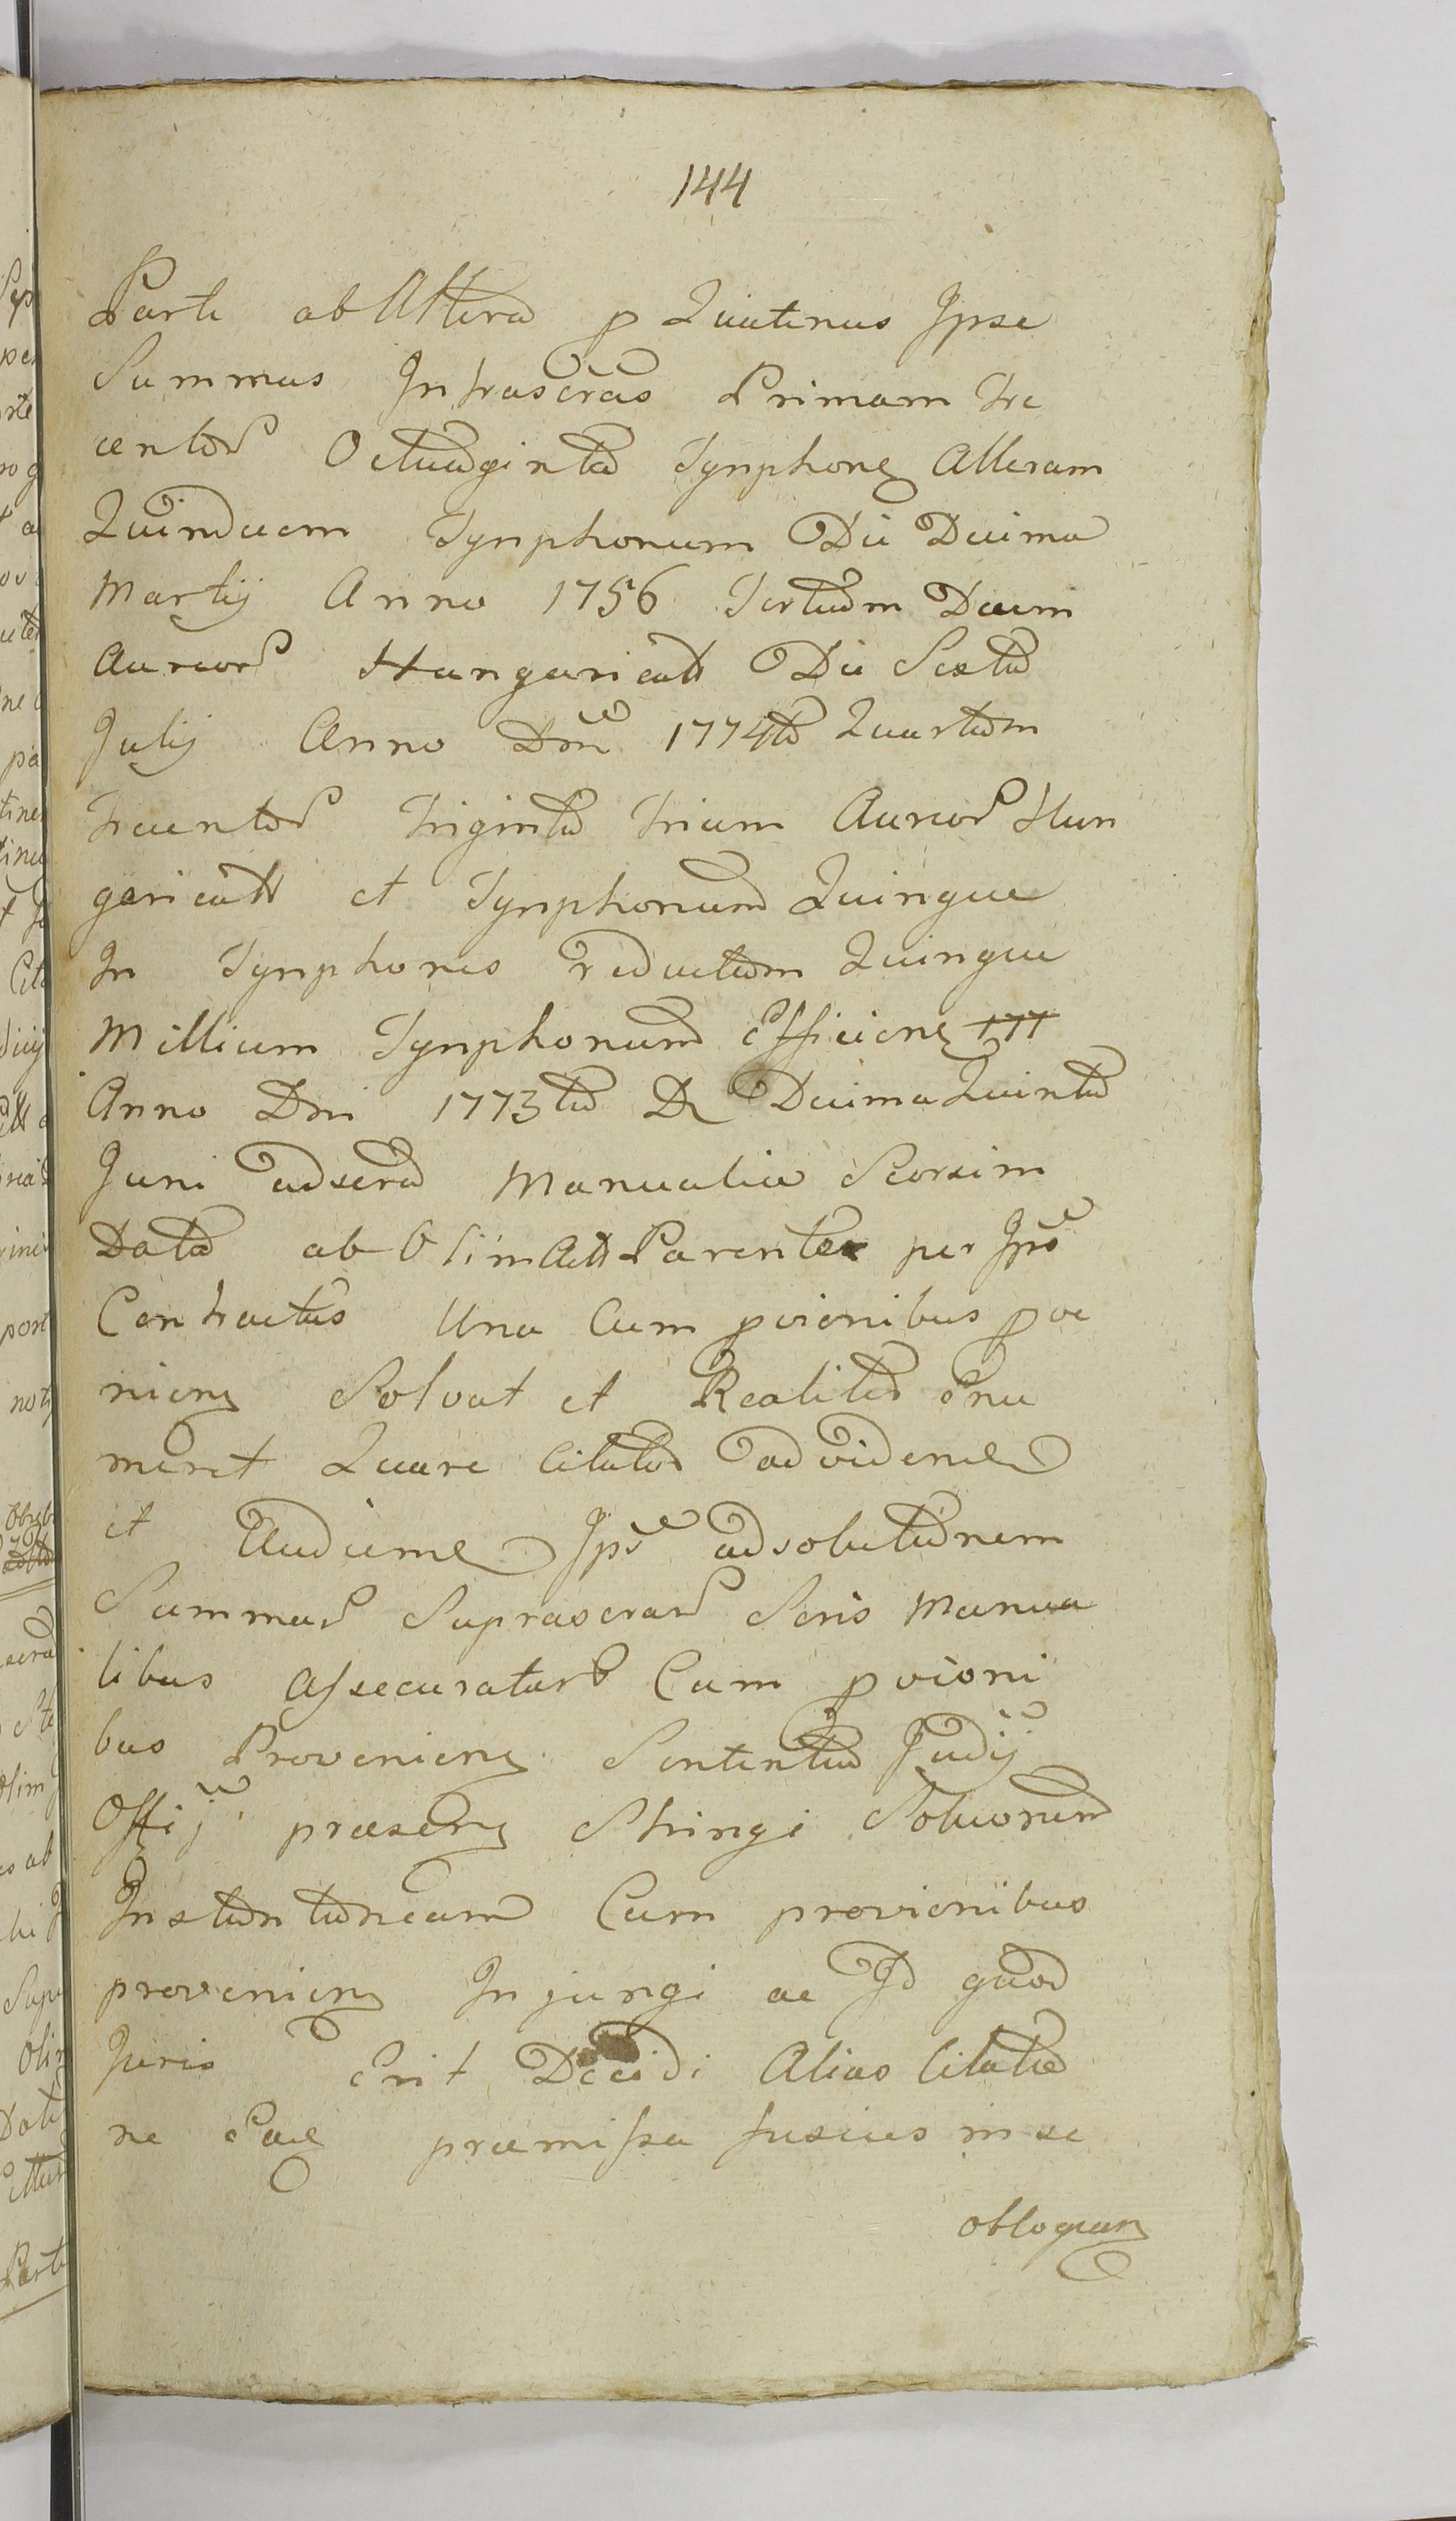 144
Parte ab Altera p Quatenus Ipse
Summas Infrascras Primam tre
centor Octuaginta Tynphonŋ Alteram
Quindecem Tynphonum Die Decima
Martij Anno 1756 Tertiam Decem
Aureor Hungaricall Die Sexta
Julij Anno Dni 1774to Quartam
trecentor triginta trium Aureor Hun
garicall et Tynphonum Quinque
In Tynphones reductam Quinque
Millium Tynphonum Efficienŋ 177
Anno Dni 1773tio D Decima Quinta
Juni ad scra Manualia Seorsim
Data ab Olim Parente per Ips
Contractas Una Cum pvionibus pve
nienŋ Solvat et Realiter Enu
meret Quare Citatos ad videndm
et Audiendm Ips ad solutionem
Summar Suprascrar Scris Manua
libus Assecuratar Cum pvioni
bus Provenienŋ Sententia Judij
Offij præsenŋ Stringi Solutionem
Instantaneam Cum provionibus
provenienŋ Injungi ac Id quod
Juris Erit Decidi Alias Citatio
ne præmissa fusius in se
obloquenŋ